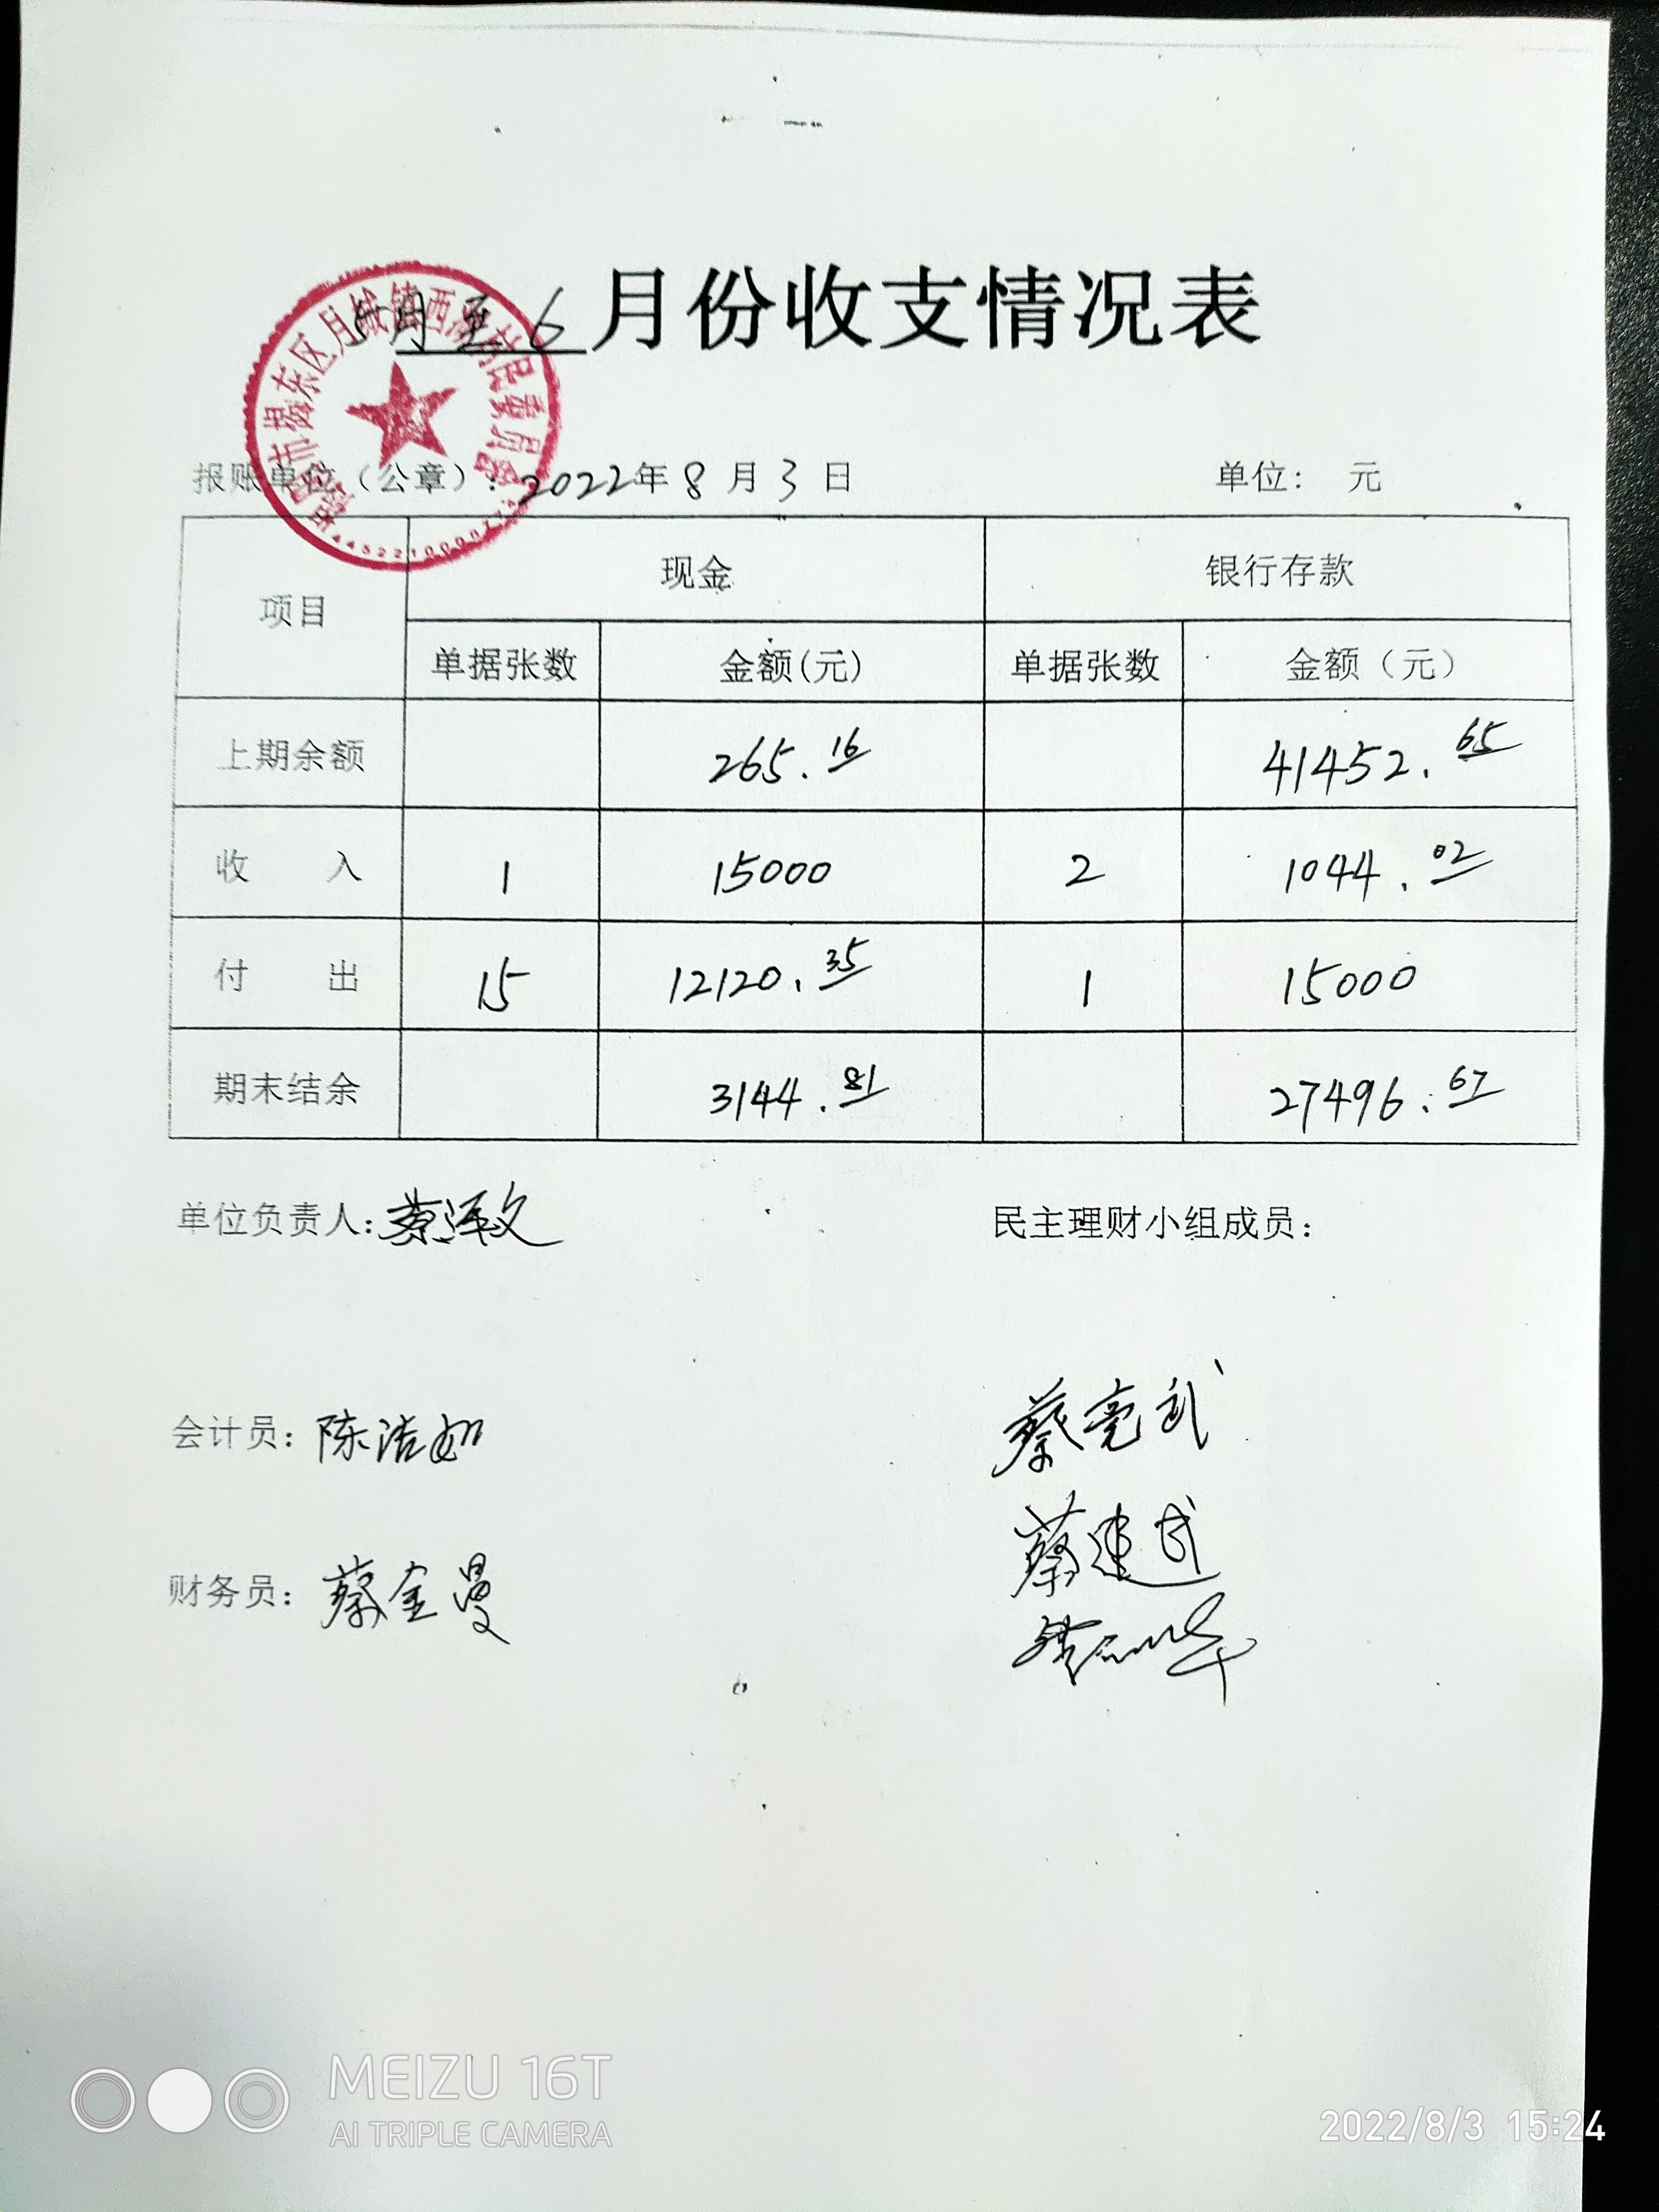 5月至6月份收支情况表
报账单位（公章）：2022年8月3日 单位： 元
项目 现金 银行存款
单据张数 金额(元) 单据张数 金额（元）
上期余额 265.16 41452.65
收 入 1 15000 2 1044.02
付 出 15 12120.35 1 15000
期末结余 3144.81 27496.67
单位负责人：蔡泽文 民主理财小组成员：
会计员：陈洁如 蔡亮武
蔡建武
财务员：蔡金曼
MEIZU 16T
AI TRIPLE CAMERA
2022/8/3 15:24